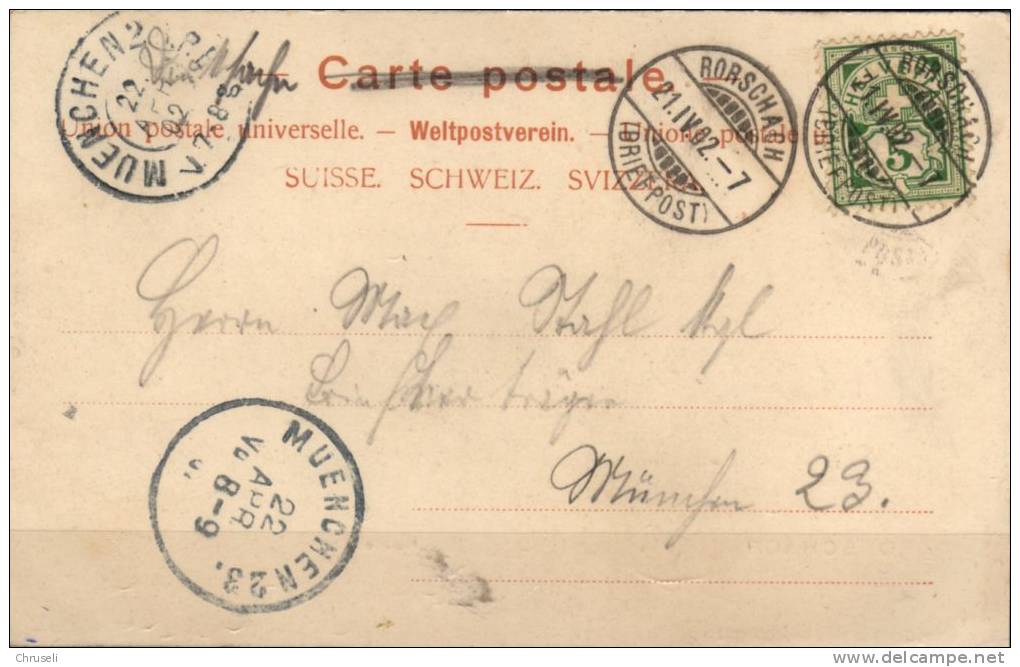 MUENCHEN 2
22 APR 02
V. 7-8
Drucksache
Carte postale.
Union postale universelle. — Weltpostverein. — Unione postale
SUISSE. SCHWEIZ. SVIZZERA.
RORSCHACH
21.IV.02.–7
(BRIEFPOST)
RORSCHACH
21.IV.02.
(BRIEFPOST)
5
Herrn Max Stahl kgl
Briefträger
München 23.
MUENCHEN 23.
22 APR
V. 8–9
Chruseli
DELCAMPE.NET